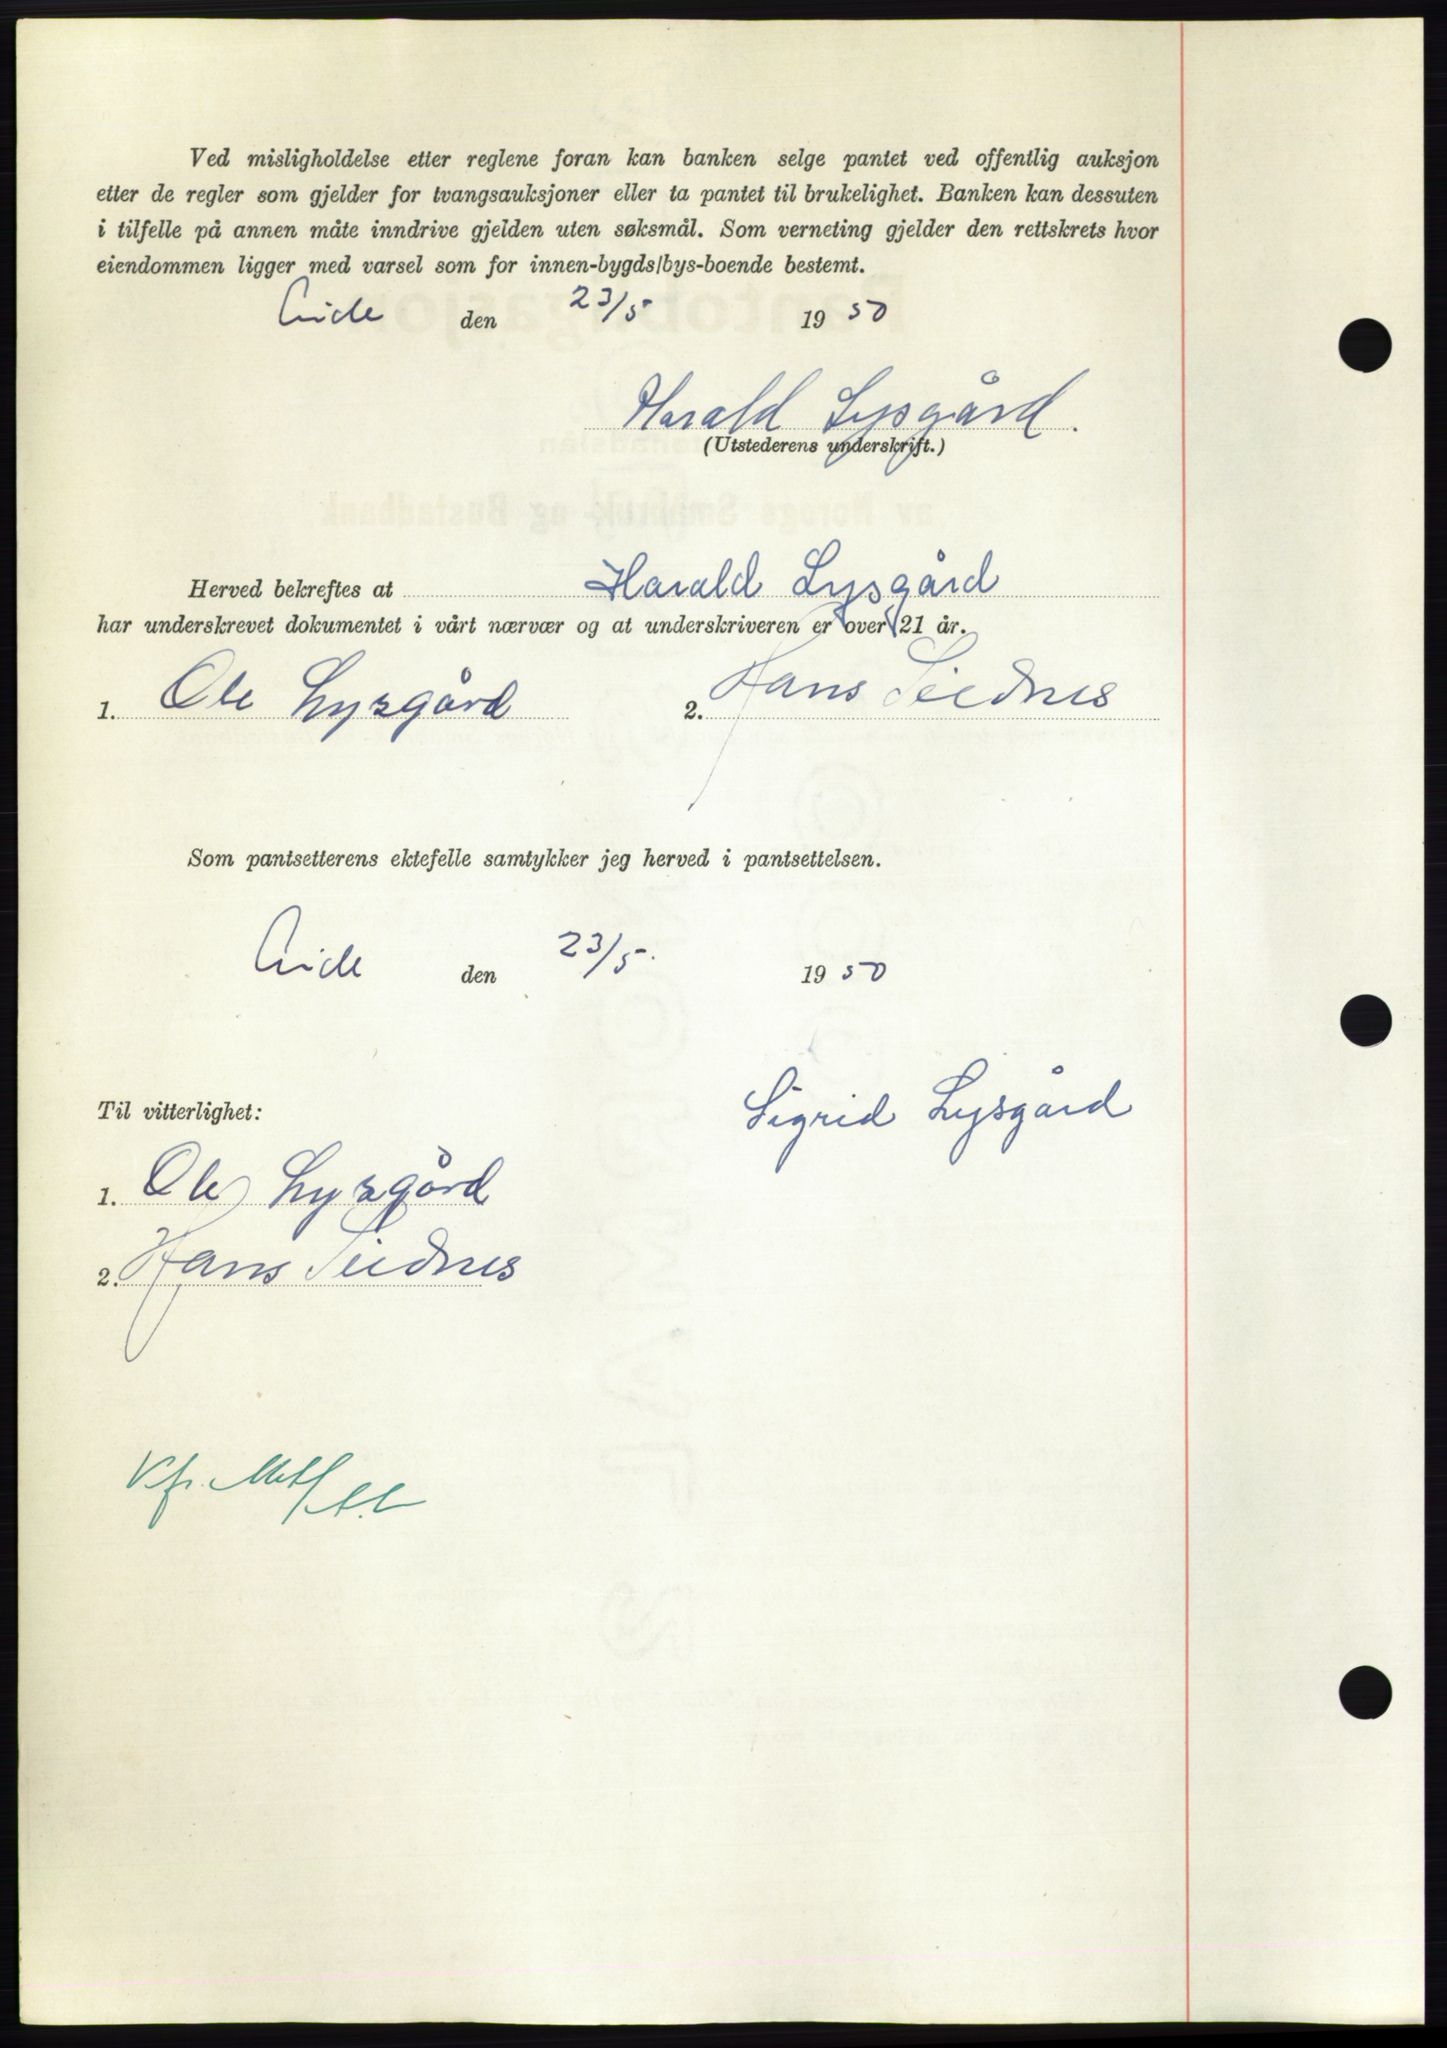 Ved misligholdelse etter reglene foran kan banken selge pantet ved offentlig auksjon
etter de regler som gjelder for tvangsauksjoner eller ta pantet til brukelighet. Banken kan dessuten
i tilfelle på annen måte inndrive gjelden uten søksmål. Som verneting gjelder den rettskrets hvor
eiendommen ligger med varsel som for innen-bygds/bys-boende bestemt.
den 23/5 1950
Harald Lysgård.
(Utstederens underskrift.)
Herved bekreftes at Harald Lysgård
har underskrevet dokumentet i vårt nærvær og at underskriveren er over 21 år.
1. Ole Lysgård 2. Hans
Som pantsetterens ektefelle samtykker jeg herved i pantsettelsen.
den 23/5. 1950
Sigrid Lysgård
Til vitterlighet:
1. Ole Lysgård
2. Hans